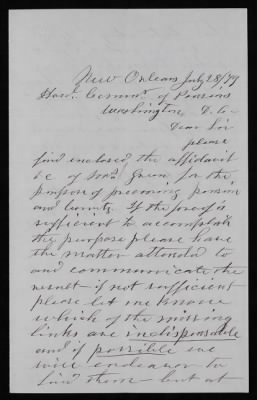 New Orleans July 28/79
Hon. Commr. of Pensions
Washington, D. C.
Dear Sir
please
find enclosed the affidavit
&c of Mrs. Green for the
purpose of procuring pension
and bounty. If the proof is
sufficient to accomplish
the purpose please have
the matter attended to
and communicate the
result - if not sufficient
please let me know
which of the missing
links are indispensable
and if possible we
will endeavor to
find them - but at